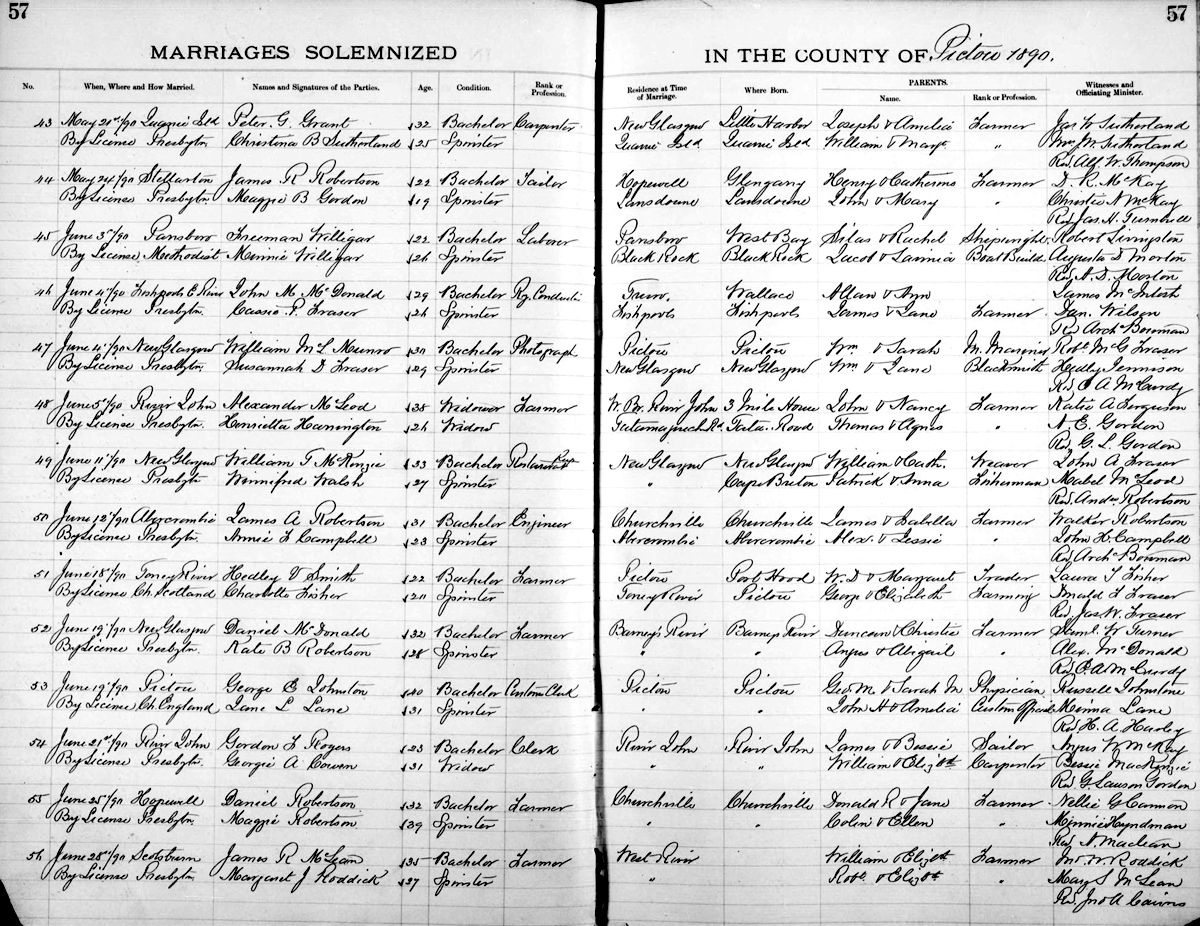 57
57
MARRIAGES SOLEMNIZED
IN THE COUNTY OF Pictou 1890.
No. When, Where and How Married. Names and Signatures of the Parties. Age. Condition. Rank or Profession. Residence at Time of Marriage. Where Born. PARENTS. Name. Rank or Profession. Witnesses and Officiating Minister.
43 May 21st/90 Peter G Grant 32 Bachelor Carpenter New Glasgow Little Harbor Joseph & Amelia Farmer Jas W Sutherland
By License Presbytn Christena B Sutherland 25 Spinster William & Mary " Wm M Sutherland
Rev Alf W. Thompson
44 May 24/90 Stellarton James R Robertson 22 Bachelor Tailor Hopewell Glengary Henry & Catherine Farmer D. R. McKay
By License Presbytn Maggie B Gordon 19 Spinster Lansdowne Lansdowne John & Mary " Christie A McKay
Rev Jas A. Turnbull
45 June 3rd/90 Parrsboro Freeman Willigar 22 Bachelor Laborer Parrsboro West Bay Silas & Rachel Shipwright Robert Livingston
By License Methodist Minnie Willigar 26 Spinster Black Rock Black Rock Jacob & Boat Build Augusta D Morton
Rev A. D. Morton
46 June 4/90 Fishpools E River John M McDonald 29 Bachelor Ry. Conductor Truro. Wallace Allan & Ann James McIntosh
By License Presbytn Cassie F. Fraser 26 Spinster Fishpools Fishpools James & Jane Farmer Dan. Wilson
Rev Archd Bowman
47 June 4/90 New Glasgow William McL Munro 30 Bachelor Photograph Pictou Pictou Wm & Sarah M. Mariner Robt McG Fraser
By License Presbytn Susannah D Fraser 29 Spinster New Glasgow New Glasgow Wm & Jane Blacksmith Hedley Jennison
Rev A McCurdy
48 June 5/90 River John Alexander McLeod 38 Widower Farmer W. Br. River John 3 Mile House John & Nancy Farmer Katie A Ferguson
By License Presbytn Henrietta Harrington 26 Widow Tatamagouche Rd Tata. Road Thomas & Agnes " A E. Gordon
Rev G. L Gordon
49 June 11th/90 New Glasgow William T McKenzie 33 Bachelor Restaurant Keeper New Glasgow New Glasgow William & Cath. Weaver John A Fraser
By License Presbytn Winnifred Walsh 27 Spinster " Cape Breton Patrick & Anna Fisherman Mabel McLeod
Rev Andw Robertson
50 June 12th/90 Abercrombie James A Robertson 31 Bachelor Engineer Churchville Churchville James & Isabella Farmer Walker Robertson
By License Presbytn Annie F Campbell 23 Spinster Abercrombie Abercrombie Alex. & Jessie " John H. Campbell
Rev Archd Bowman
51 June 18th/90 Toney River Hedley V Smith 22 Bachelor Farmer Pictou Port Hood W. D & Margaret Trader Laura S Fisher
By License Ch. Scotland Charlotte Fisher 20 Spinster Toney River Pictou George & Elizabeth Farming Donald F Fraser
Rev Jas W. Fraser
52 June 19/90 New Glasgow Daniel McDonald 32 Bachelor Farmer Barney's River Barneys River Duncan & Christie Farmer Saml. W Turner
By License Presbytn. Kate B Robertson 28 Spinster " " Angus & Abigail " Alex. McDonald
Rev A McCurdy
53 June 19/90 Pictou George E Johnston 40 Bachelor Customs Clerk Pictou Pictou Geo M. & Sarah M Physician Russell Johnstone
By License Ch. England Jane L Lane 31 Spinster " " John H & Amelia Custom Officer Minna Lane
Rev H. A Harley
54 June 21st/90 River John Gordon F Rogers 23 Bachelor Clerk River John River John James & Bessie Sailor Angus W McKay
By License Presbytn. Georgie A Cowen 31 Widow " " William & Elizbth Carpenter Bessie MacKenzie
Rev G. Lawson Gordon
55 June 25/90 Hopewell Daniel Robertson 32 Bachelor Farmer Churchville Churchville Donald R & Jane Farmer Nellie G Cannon
By License Presbytn Maggie Robertson 39 Spinster " " Colin & Ellen " Minnie Hyndman
Rev A. Maclean
56 June 28th/90 Scotsburn James R McLean 35 Bachelor Farmer West River William & Elizbth Farmer W Roddick
By License Presbytn Margaret J Roddick 27 Spinster " Robt. & Elizbth " Mary S McLean
Rev. Jno A Cairns